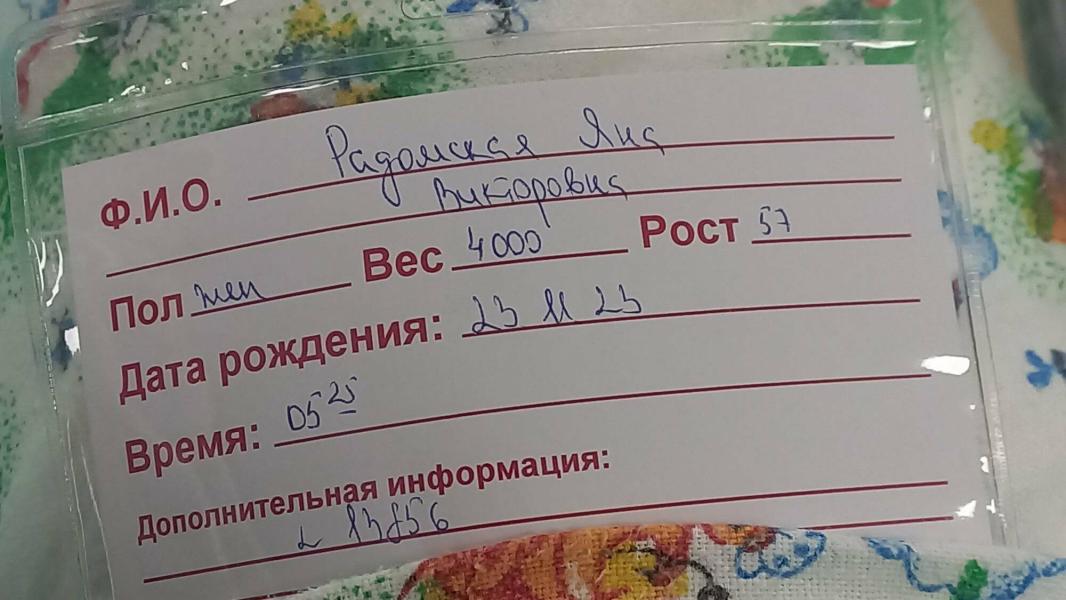 Ф.И.О. Радомская Яна
Викторовна
Пол жен Вес 4000 Рост 57
Дата рождения: 23 11 23
Время: 05 25
Дополнительная информация: